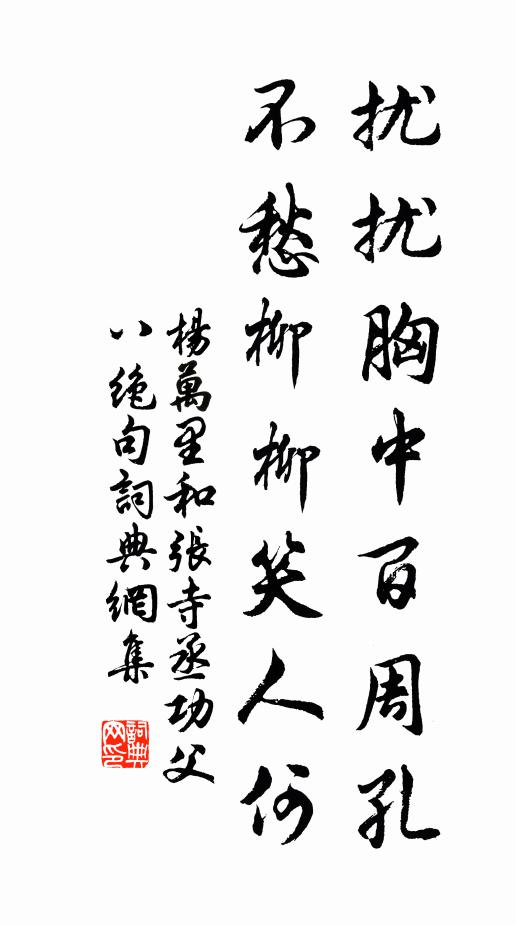 扰扰胸中百周孔
不愁柳柳笑人何
楊萬里和張寺丞功父
八絶句詞典網集
詞典
网印